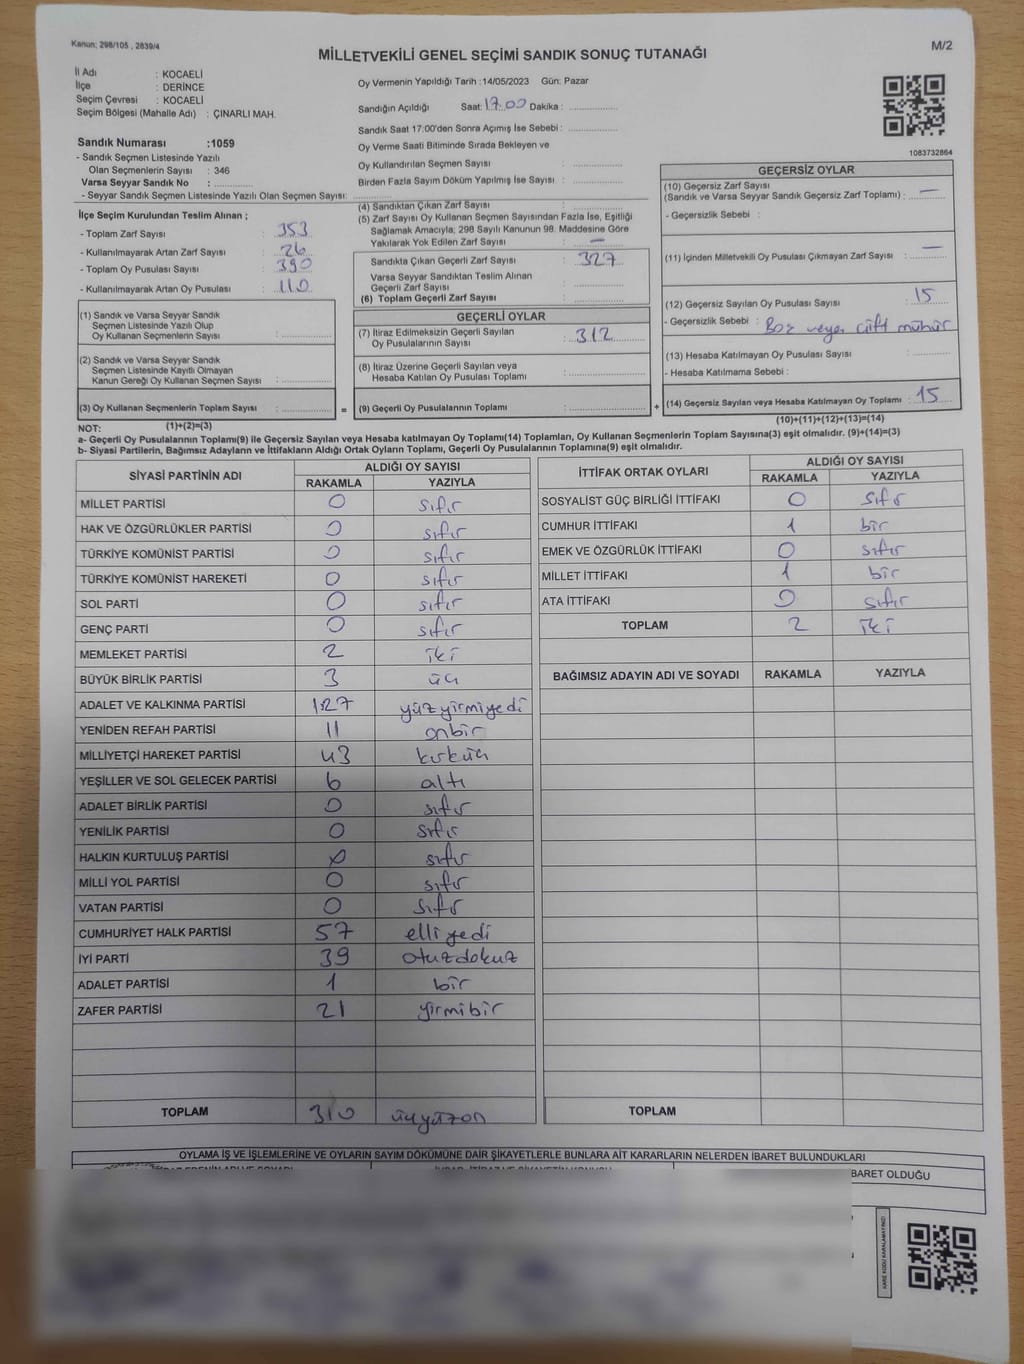 Kanun: 298/105 , 2839/4
M/2
MİLLETVEKİLİ GENEL SEÇİMİ SANDIK SONUÇ TUTANAĞI
İl Adı : KOCAELİ
İlçe : DERİNCE
Seçim Çevresi : KOCAELİ
Seçim Bölgesi (Mahalle Adı) : ÇINARLI MAH.
Sandık Numarası :1059
- Sandık Seçmen Listesinde Yazılı
Olan Seçmenlerin Sayısı : 346
Varsa Seyyar Sandık No :
- Seyyar Sandık Seçmen Listesinde Yazılı Olan Seçmen Sayısı:
Oy Vermenin Yapıldığı Tarih :14/05/2023 Gün: Pazar
Sandığın Açıldığı Saat: 17.00 Dakika :
Sandık Saat 17:00'den Sonra Açımış İse Sebebi :
Oy Verme Saati Bitiminde Sırada Bekleyen ve
Oy Kullandırılan Seçmen Sayısı :
Birden Fazla Sayım Döküm Yapılmış İse Sayısı :
1083732864
İlçe Seçim Kurulundan Teslim Alınan ;
- Toplam Zarf Sayısı : 353
- Kullanılmayarak Artan Zarf Sayısı : 26
- Toplam Oy Pusulası Sayısı : 390
- Kullanılmayarak Artan Oy Pusulası : 110
(1) Sandık ve Varsa Seyyar Sandık
Seçmen Listesinde Yazılı Olup
Oy Kullanan Seçmenlerin Sayısı :
(2) Sandık ve Varsa Seyyar Sandık
Seçmen Listesinde Kayıtlı Olmayan
Kanun Gereği Oy Kullanan Seçmen Sayısı :
(3) Oy Kullanan Seçmenlerin Toplam Sayısı :
(4) Sandıktan Çıkan Zarf Sayısı :
(5) Zarf Sayısı Oy Kullanan Seçmen Sayısından Fazla İse, Eşitliği
Sağlamak Amacıyla; 298 Sayılı Kanunun 98. Maddesine Göre
Yakılarak Yok Edilen Zarf Sayısı : —
Sandıkta Çıkan Geçerli Zarf Sayısı : 327
Varsa Seyyar Sandıktan Teslim Alınan
Geçerli Zarf Sayısı :
(6) Toplam Geçerli Zarf Sayısı :
GEÇERLİ OYLAR
(7) İtiraz Edilmeksizin Geçerli Sayılan
Oy Pusulalarının Sayısı : 312
(8) İtiraz Üzerine Geçerli Sayılan veya
Hesaba Katılan Oy Pusulası Toplamı :
= (9) Geçerli Oy Pusulalarının Toplamı : +
GEÇERSİZ OYLAR
(10) Geçersiz Zarf Sayısı
(Sandık ve Varsa Seyyar Sandık Geçersiz Zarf Toplamı) : —
- Geçersizlik Sebebi :
(11) İçinden Milletvekili Oy Pusulası Çıkmayan Zarf Sayısı : —
(12) Geçersiz Sayılan Oy Pusulası Sayısı : 15
- Geçersizlik Sebebi : Boş veya çift mühür
(13) Hesaba Katılmayan Oy Pusulası Sayısı :
- Hesaba Katılmama Sebebi :
(14) Geçersiz Sayılan veya Hesaba Katılmayan Oy Toplamı : 15
NOT: (1)+(2)=(3) (10)+(11)+(12)+(13)=(14)
a- Geçerli Oy Pusulalarının Toplamı(9) ile Geçersiz Sayılan veya Hesaba katılmayan Oy Toplamı(14) Toplamları, Oy Kullanan Seçmenlerin Toplam Sayısına(3) eşit olmalıdır. (9)+(14)=(3)
b- Siyasi Partilerin, Bağımsız Adayların ve İttifakların Aldığı Ortak Oyların Toplamı, Geçerli Oy Pusulalarının Toplamına(9) eşit olmalıdır.
SİYASİ PARTİNİN ADI ALDIĞI OY SAYISI
RAKAMLA YAZIYLA
MİLLET PARTİSİ 0 sıfır
HAK VE ÖZGÜRLÜKLER PARTİSİ 0 sıfır
TÜRKİYE KOMÜNİST PARTİSİ 0 sıfır
TÜRKİYE KOMÜNİST HAREKETİ 0 sıfır
SOL PARTİ 0 sıfır
GENÇ PARTİ 0 sıfır
MEMLEKET PARTİSİ 2 iki
BÜYÜK BİRLİK PARTİSİ 3 üç
ADALET VE KALKINMA PARTİSİ 127 yüzyirmiyedi
YENİDEN REFAH PARTİSİ 11 onbir
MİLLİYETÇİ HAREKET PARTİSİ 43 kırküç
YEŞİLLER VE SOL GELECEK PARTİSİ 6 altı
ADALET BİRLİK PARTİSİ 0 sıfır
YENİLİK PARTİSİ 0 sıfır
HALKIN KURTULUŞ PARTİSİ 0 sıfır
MİLLİ YOL PARTİSİ 0 sıfır
VATAN PARTİSİ 0 sıfır
CUMHURİYET HALK PARTİSİ 57 elliyedi
İYİ PARTİ 39 otuzdokuz
ADALET PARTİSİ 1 bir
ZAFER PARTİSİ 21 yirmibir
TOPLAM 310 üçyüzon
İTTİFAK ORTAK OYLARI ALDIĞI OY SAYISI
RAKAMLA YAZIYLA
SOSYALİST GÜÇ BİRLİĞİ İTTİFAKI 0 sıfır
CUMHUR İTTİFAKI 1 bir
EMEK VE ÖZGÜRLÜK İTTİFAKI 0 sıfır
MİLLET İTTİFAKI 1 bir
ATA İTTİFAKI 0 sıfır
TOPLAM 2 iki
BAĞIMSIZ ADAYIN ADI VE SOYADI RAKAMLA YAZIYLA
TOPLAM
OYLAMA İŞ VE İŞLEMLERİNE VE OYLARIN SAYIM DÖKÜMÜNE DAİR ŞİKAYETLERLE BUNLARA AİT KARARLARIN NELERDEN İBARET BULUNDUKLARI
BARET OLDUĞU
KARE KODU KARALAMAYINIZ!